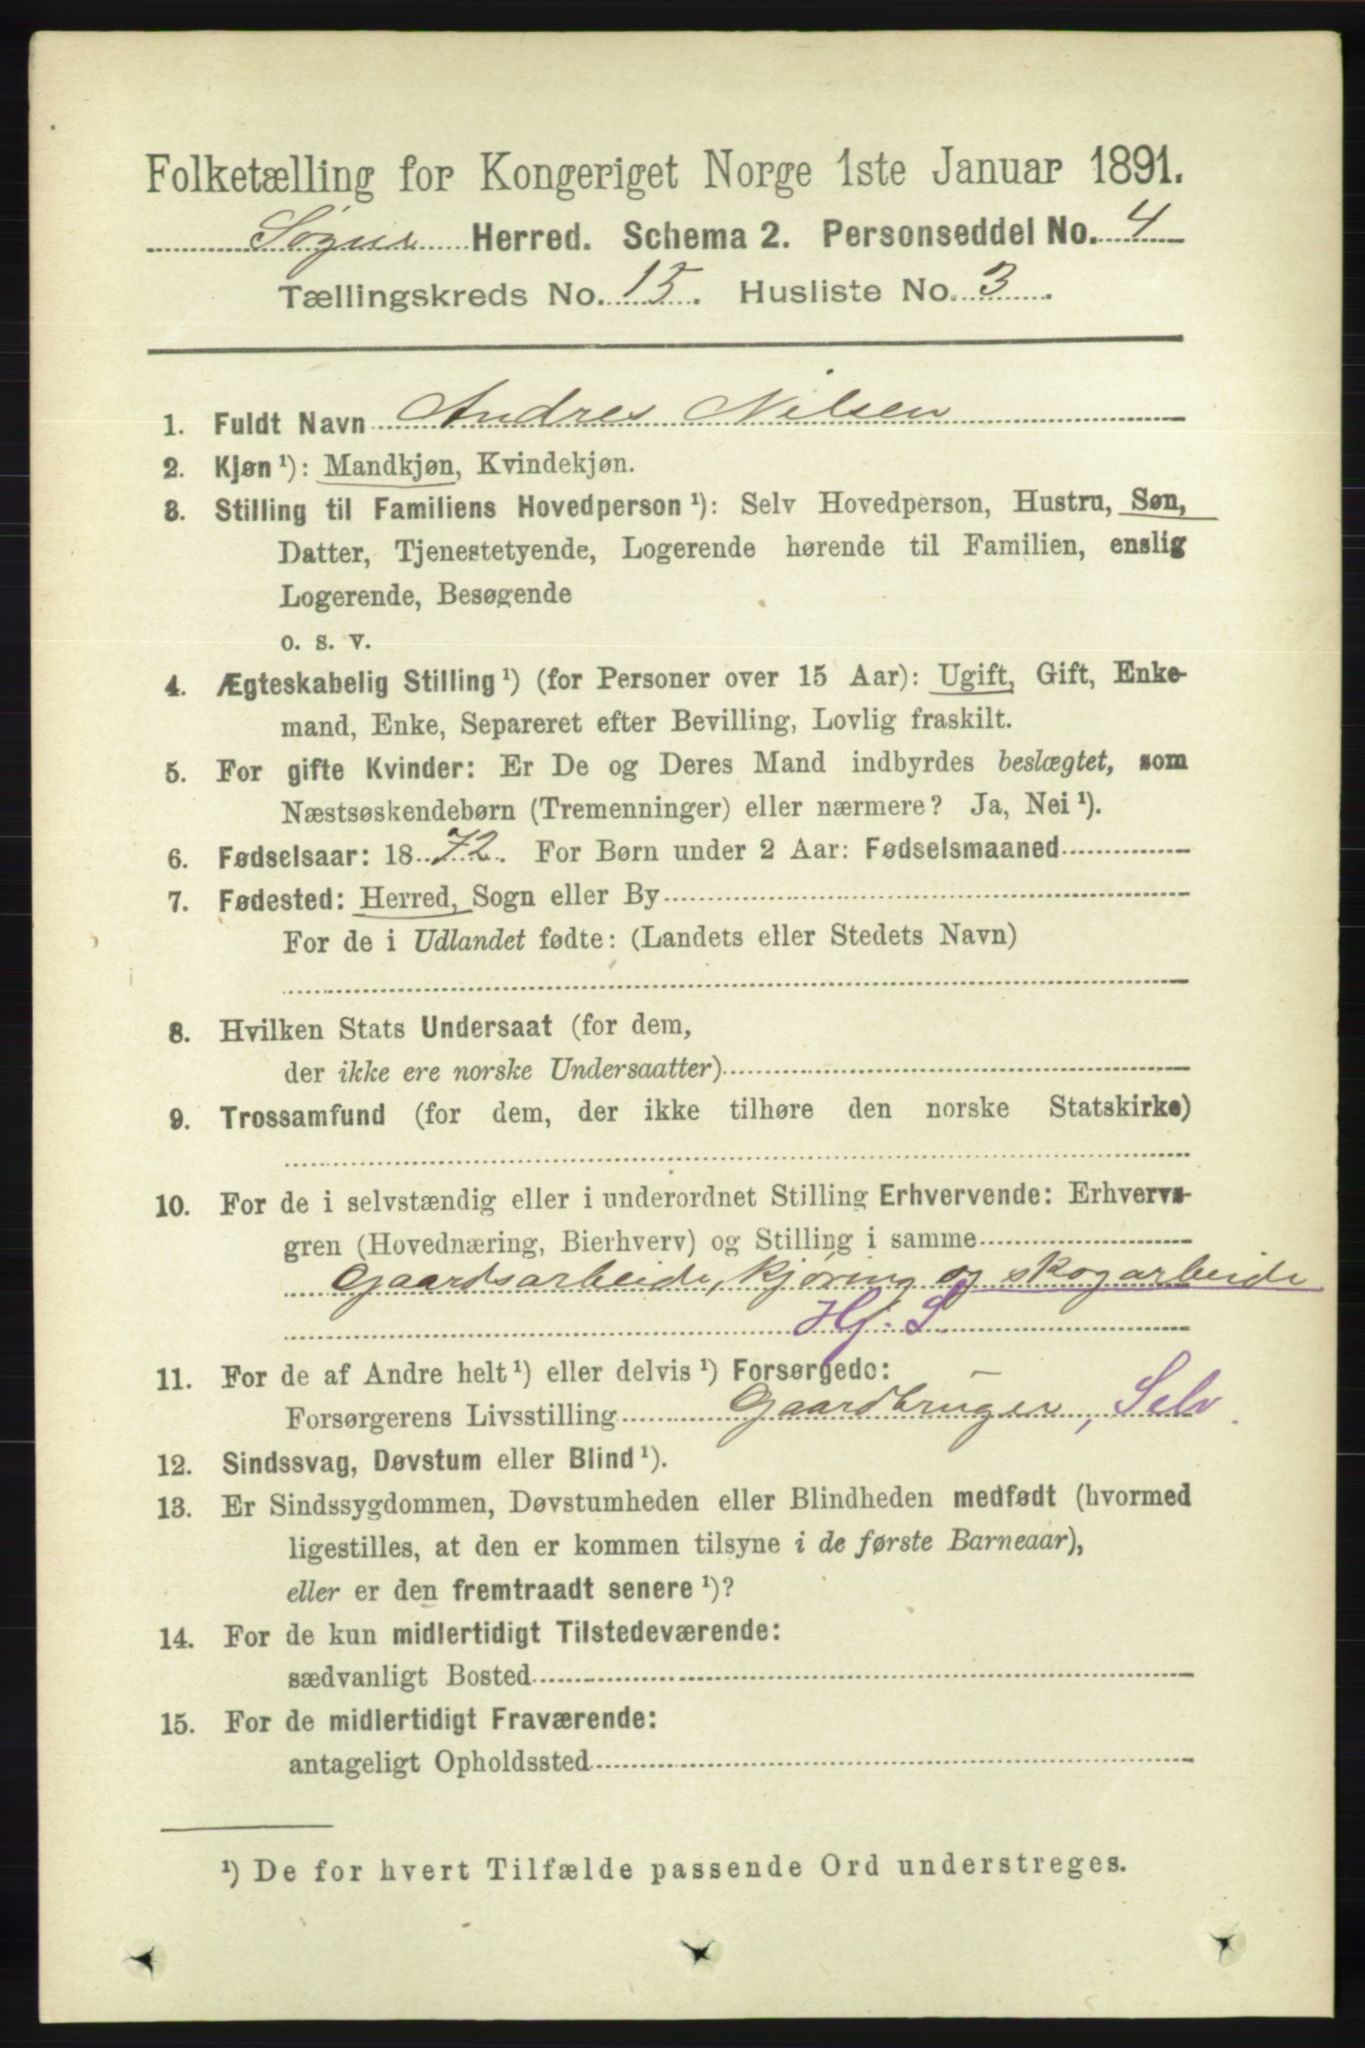 Folketælling for Kongeriget Norge 1ste Januar 1891.
Søgne Herred. Schema 2. Personseddel No. 4
Tællingskreds No. 15. Husliste No. 3.
1. Fuldt Navn Andres Nilsen
2. Kjøn ¹): Mandkjøn, Kvindekjøn.
3. Stilling til Familiens Hovedperson ¹): Selv Hovedperson, Hustru, Søn,
Datter, Tjenestetyende, Logerende hørende til Familien, enslig
Logerende, Besøgende
o. s. v.
4. Ægteskabelig Stilling ¹) (for Personer over 15 Aar): Ugift, Gift, Enke-
mand, Enke, Separeret efter Bevilling, Lovlig fraskilt.
5. For gifte Kvinder: Er De og Deres Mand indbyrdes beslægtet, som
Næstsøskendebørn (Tremenninger) eller nærmere? Ja, Nei ¹).
6. Fødselsaar: 1872. For Børn under 2 Aar: Fødselsmaaned
7. Fødested: Herred, Sogn eller By
For de i Udlandet fødte: (Landets eller Stedets Navn)
8. Hvilken Stats Undersaat (for dem,
der ikke ere norske Undersaatter)
9. Trossamfund (for dem, der ikke tilhøre den norske Statskirke)
10. For de i selvstændig eller i underordnet Stilling Erhvervende: Erhvervs-
gren (Hovednæring, Bierhverv) og Stilling i samme
Gaardsarbeide, kjøring og skogarbeide
Hf. S.
11. For de af Andre helt ¹) eller delvis ¹) Forsørgede:
Forsørgerens Livsstilling Gaardbruger, Selv.
12. Sindssvag, Døvstum eller Blind ¹).
13. Er Sindssygdommen, Døvstumheden eller Blindheden medfødt (hvormed
ligestilles, at den er kommen tilsyne i de første Barneaar),
eller er den fremtraadt senere ¹)?
14. For de kun midlertidigt Tilstedeværende:
sædvanligt Bosted
15. For de midlertidigt Fraværende:
antageligt Opholdssted
¹) De for hvert Tilfælde passende Ord understreges.